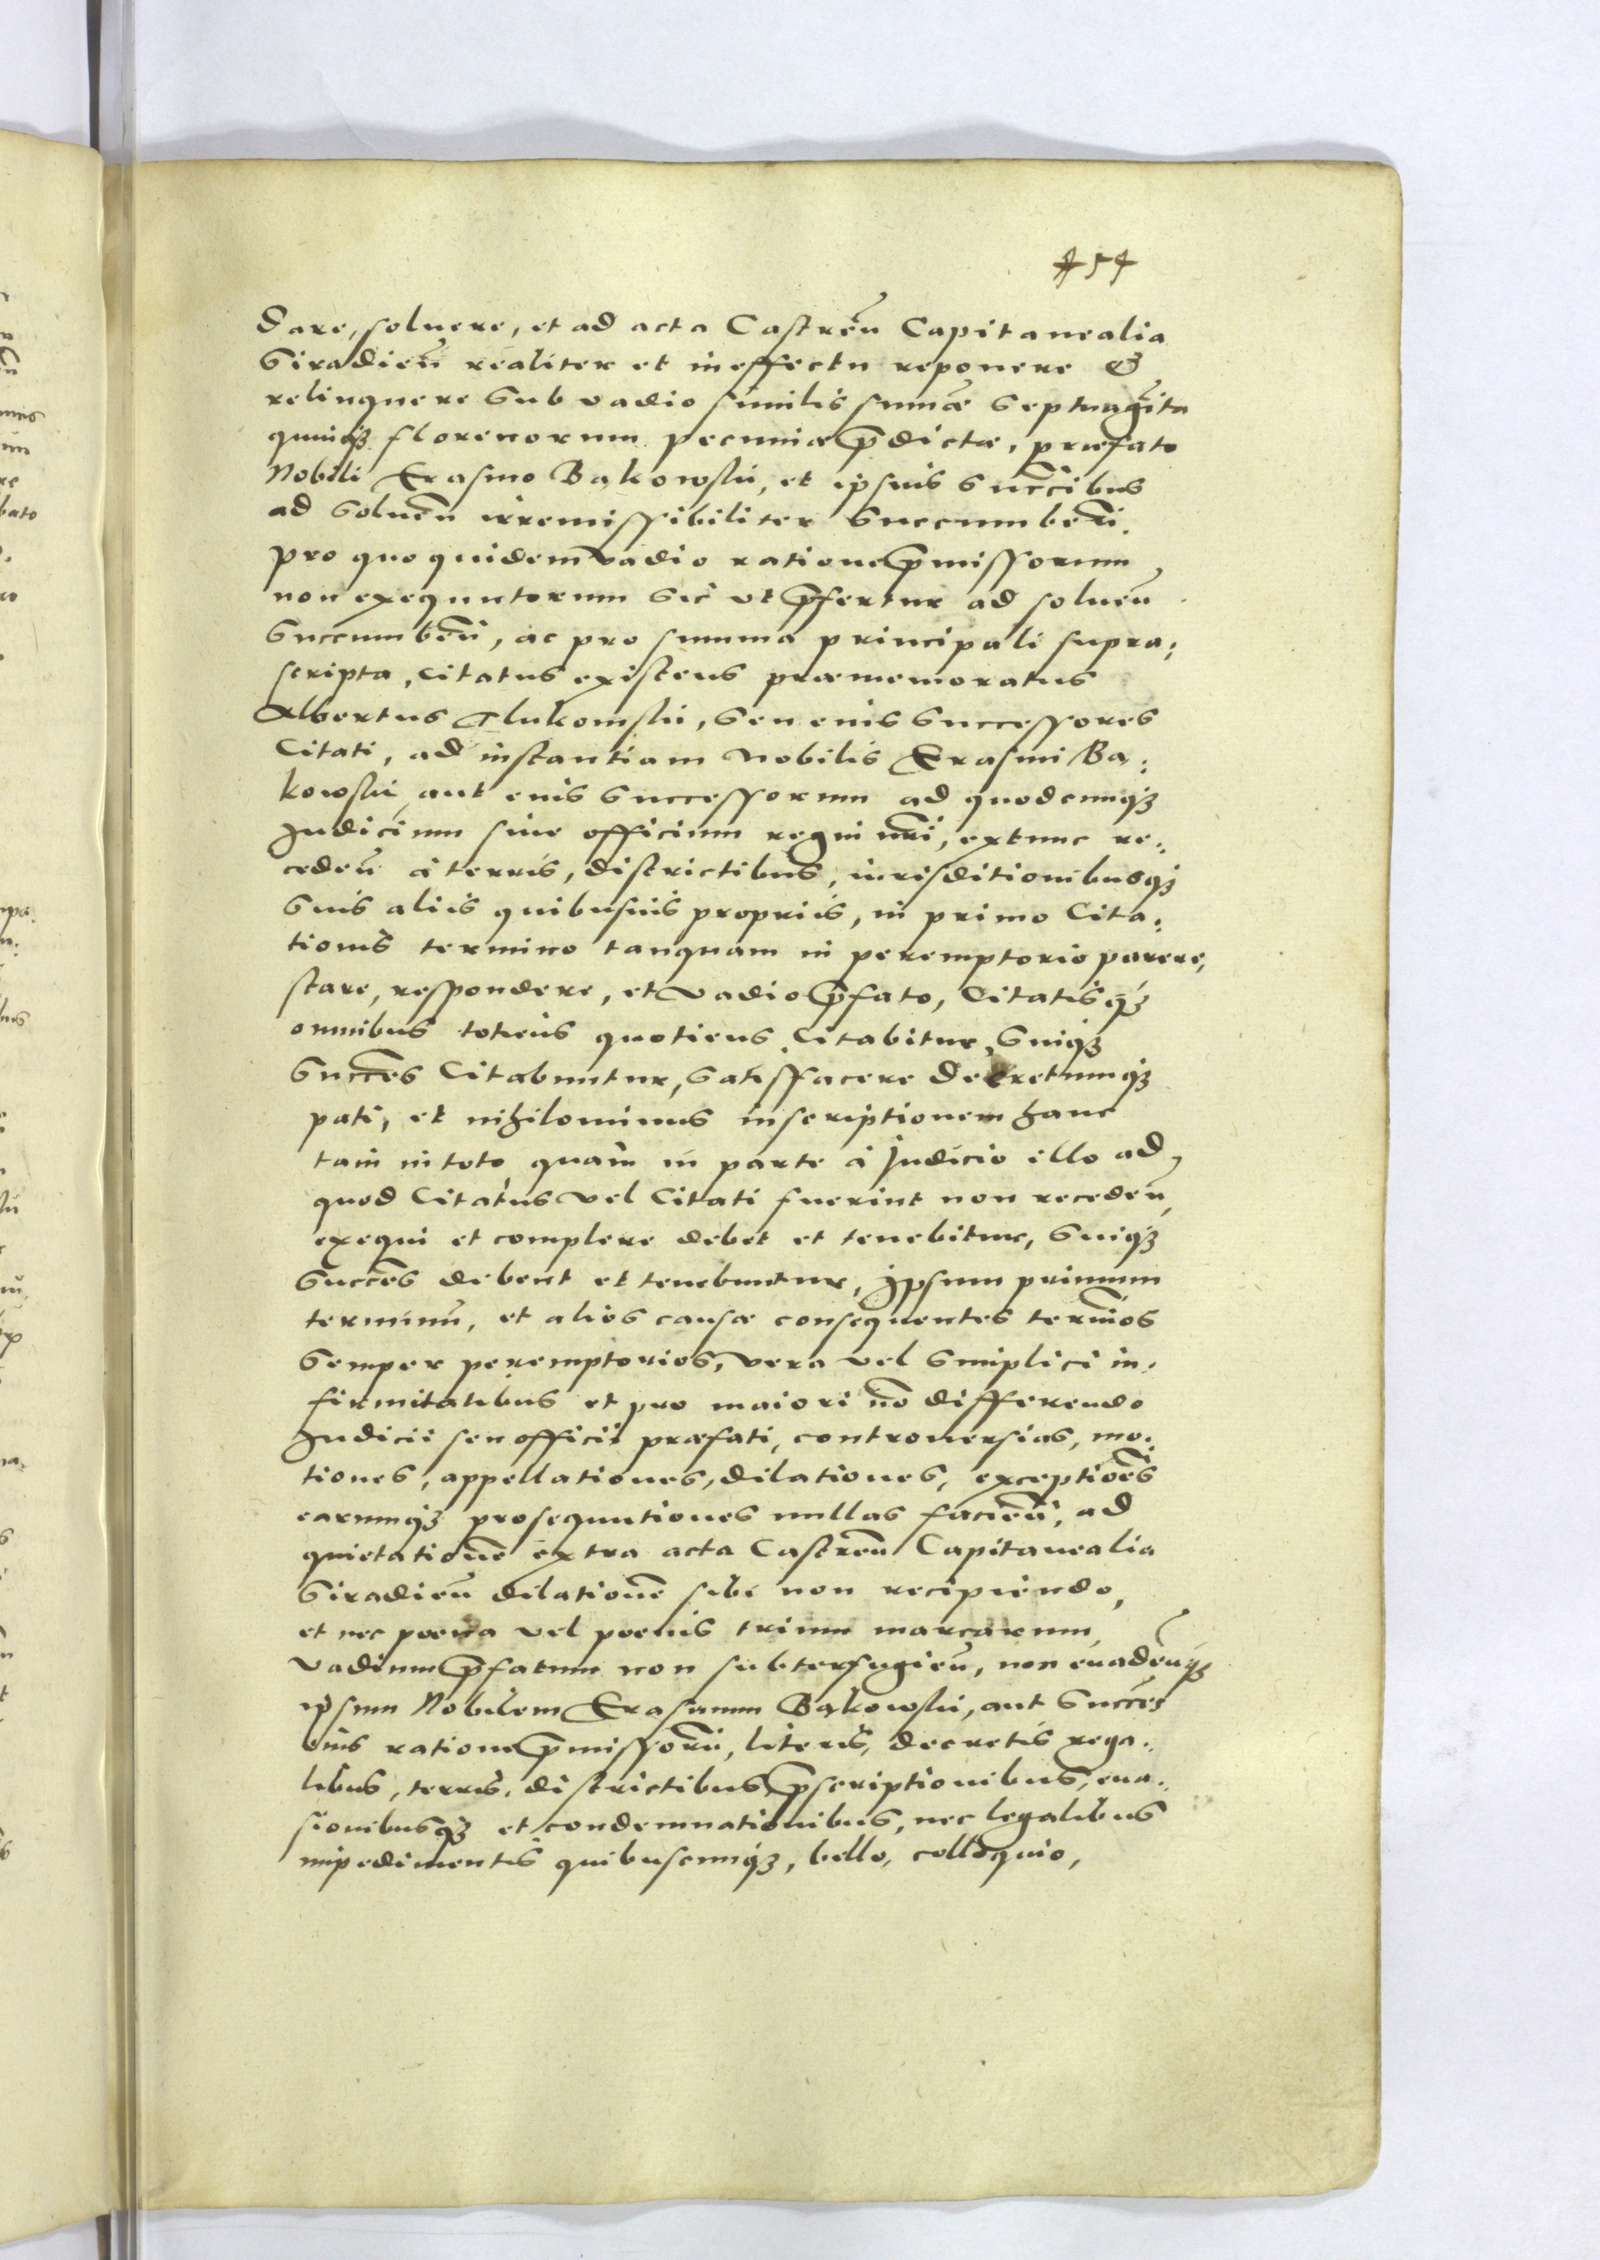 454
dare, soluere, et ad acta Castreñ Capitanealia
Siradieñ realiter et in effectu reponere &
relinquere sub vadio similis sum̃æ septuagĩta
quinq3 florenorum pecuniæ p̃dictæ, præfato
Nobili Erasmo Bąkowski, et ipsius succ̃ibus
ad solueñ irremissibiliter succumbeñ.
pro quo quidem vadio ratione p̃missorum
non exequutorum sic vt p̃fertur ad solueñ
succumbeñ, ac pro summa principali supra:
scripta, citatus existens præmemoratus
Albertus Tlukomski, seu eius successores
Citati, ad instantiam Nobilis Erasmi Bą:
kowski aut eius successorum ad quodcunq3
Judicium siue officium regni nr̃i, extunc re:
cedeñ à terris, districtibus, iurisditionibusq3
suis aliis quibusuis propriis, in primo Cita:
tionis termino tanquam in peremptorio parere,
stare, respondere, et vadio p̃fato, Citatisq3
omnibus totiens quotiens Citabitur, Suiq3
Succ̃es Citabuntur, Satisfacere decretumq3
pati, et nihilominus inscriptionem hanc
tam in toto quam in parte à Judicio illo ad
quod Citatus vel Citati fuerint non recedeñ,
exequi et complere debet et tenebitur, Suiq3
Succ̃es debent et tenebuntur, Ipsum primum
terminũ, et alios causæ consequentes termĩos
semper peremptorios, vera vel simplici in:
firmitatibus et pro maiori nõ differendo
Judicii seu officii præfati, controuersias, mo:
tiones, appellationes, dilationes, exceptiões
earumq3 prosequutiones nullas facieñ, ad
quietationẽ extra acta Castreñ Capitanealia
Siradieñ dilationẽ sibi non recipiendo,
et nec poena vel poenis trium marcarum
vadium p̃fatum non subterfugieñ, non euadeñq3
ipsum Nobilem Erasmum Bąkowski, aut Succ̃es
eius ratione p̃missorũ, literis, decretis rega:
libus, terris, districtibus, p̃scriptionibus, eua:
sionibusq3 et condemnationibus, nec legalibus
impedimentis quibuscunq3, bello, colloquio,